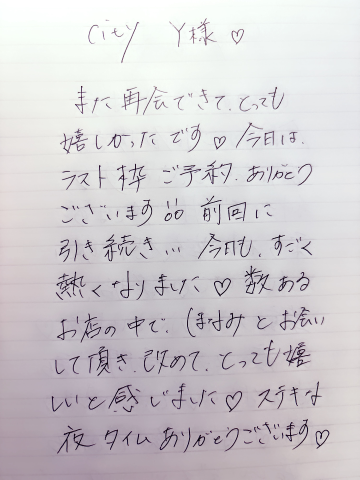 City Y様♡
また再会できて、とっても
嬉しかったです♡今日は、
ラスト枠ご予約、ありがとう
ございます 前回に
引き続き…今日も、すごく
熱くなりました♡数ある
お店の中で、ほなみとお会い
して頂き、改めて、とっても嬉
しいと感じました♡ステキな
夜タイムありがとうございます♡